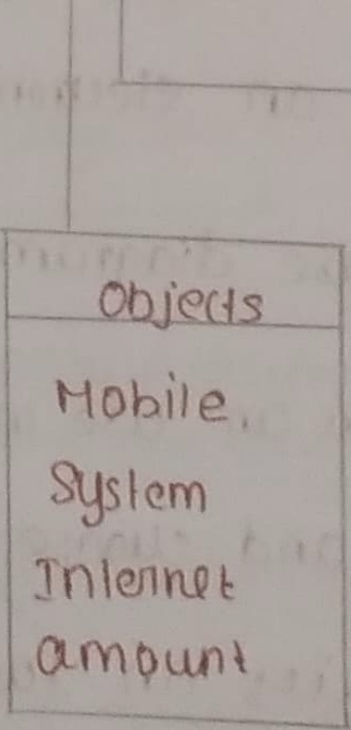 Objects
Mobile.
System
Internet
amount